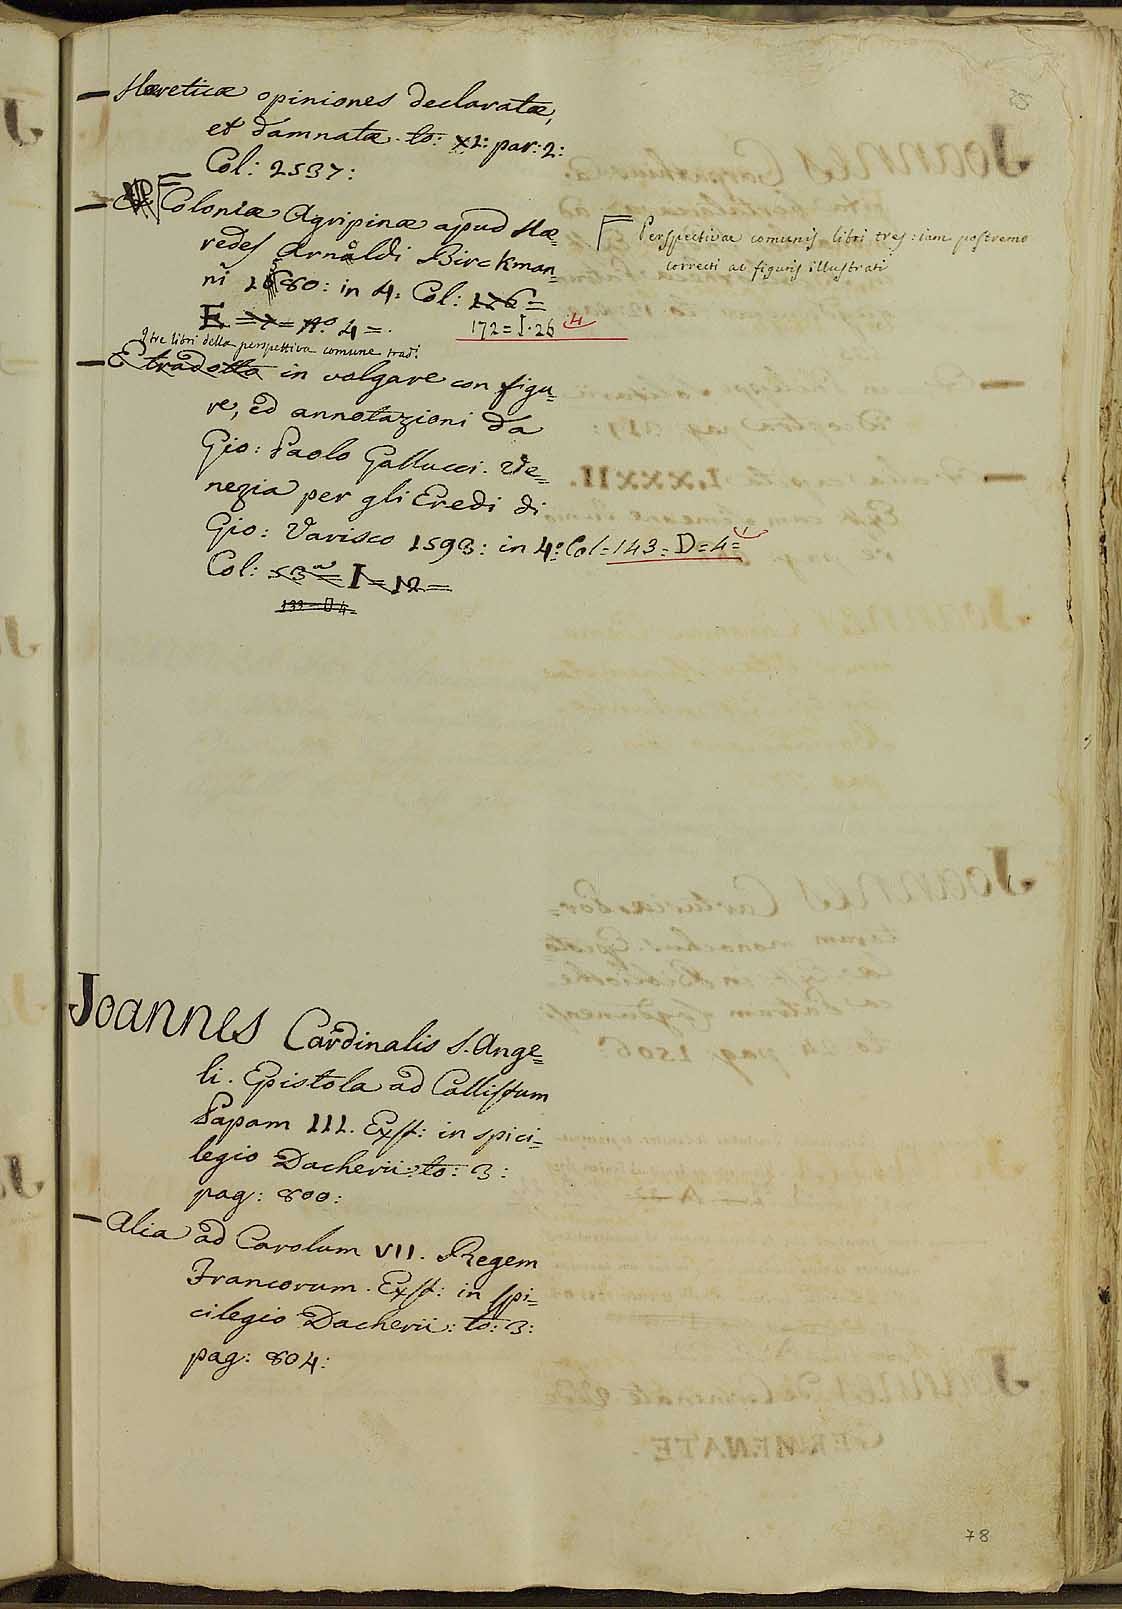 — Hæreticæ opiniones declaratæ,
et damnatæ. to: XI: par: 2:
Col: 2537:
— Coloniæ Agripinæ apud Hæ=
redes Arnaldi Birckman=
ni 1580: in 4. Col: 176=
E =7= Nº 4 =.
172 = I. 26 4
Perspectivae comunis libri tres: iam postremo
correcti ac figuris illustrati
I tre libri della perspettiva comune trad.
— E tradotta in volgare con figu=
re, ed annotazioni da
Gio: Paolo Gallucci. Ve=
nezia per gli Eredi di
Gio: Varisco 1593: in 4º: Col = 143 = D = 4 =
Col: 53 = I = 12 =
133 = D 4 =
Joannes Cardinalis S. Ange=
li. Epistola ad Callistum
Papam III. Exst: in spici=
legio Dacherii: to: 3:
pag: 800:
— Alia ad Carolum VII. Regem
Francorum. Exst: in spi=
cilegio Dacherii: to: 3:
pag: 804:
78